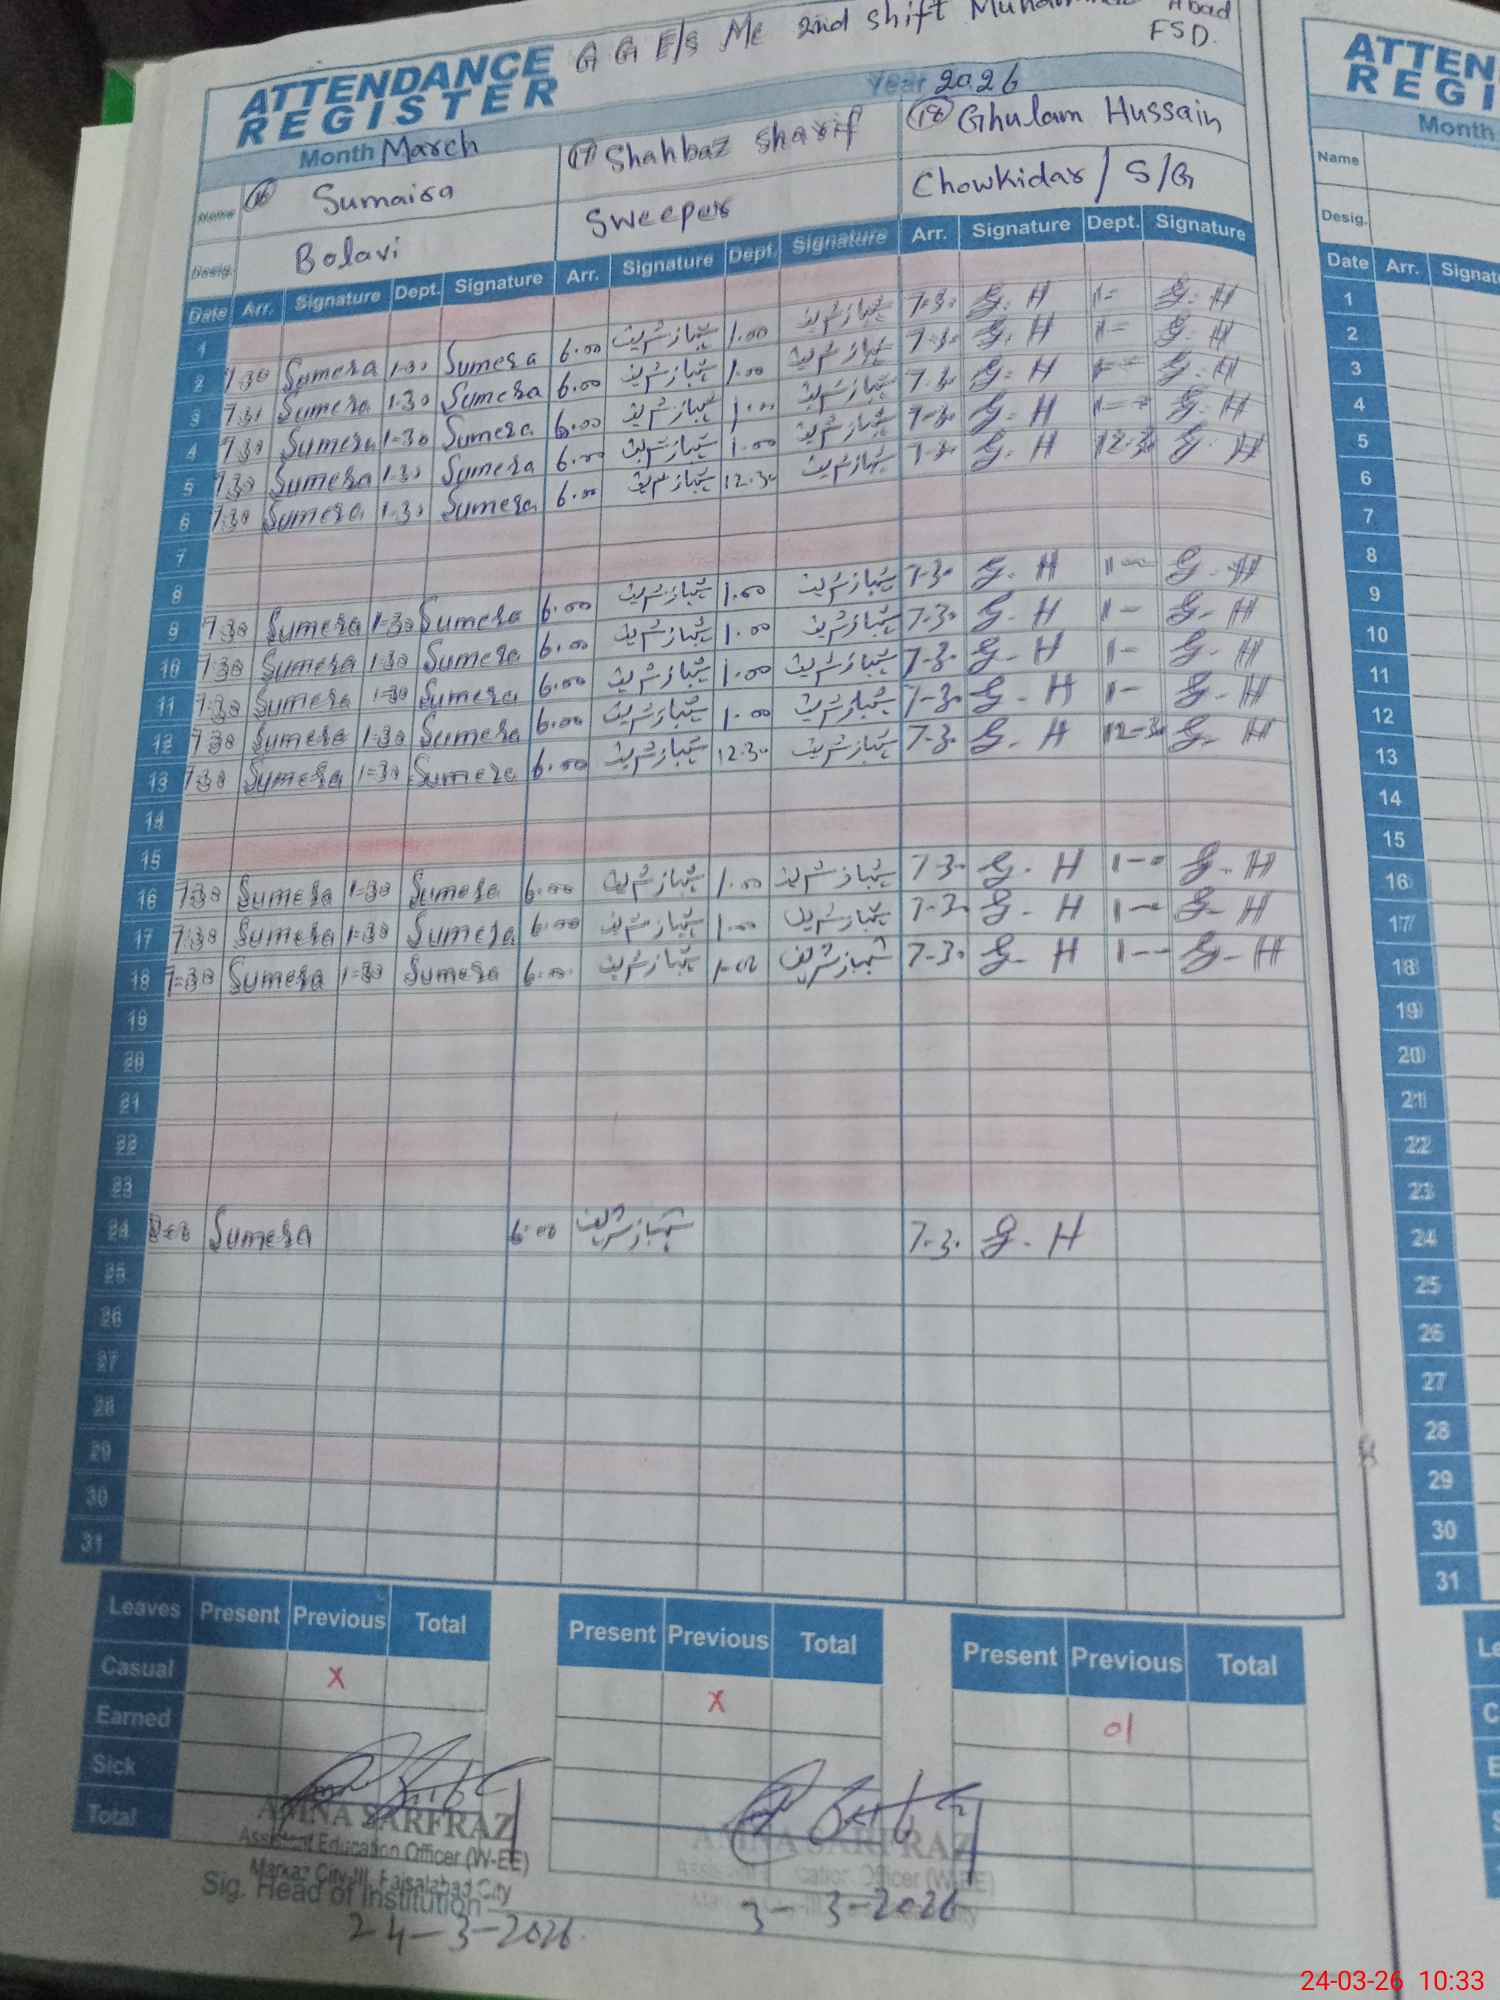 G G E/S Mc 2nd shift Muhammad Abad
FSD.
ATTENDANCE
REGISTER
Month March Year 2026
Name 16 Sumaira 17 Shahbaz sharif 18 Ghulam Hussain
Desig. Bolavi Sweeper Chowkidar / S/G
Date Arr. Signature Dept. Signature Arr. Signature Dept. Signature Arr. Signature Dept. Signature
1
2 7.30 Sumera 1-30 Sumera 6.00 شہباز شریف 1.00 شہباز شریف 7-30 G. H 1- G. H
3 7.30 Sumera 1-30 Sumera 6.00 شہباز شریف 1.00 شہباز شریف 7-30 G. H 1- G. H
4 7.30 Sumera 1-30 Sumera 6.00 شہباز شریف 1.00 شہباز شریف 7.30 G. H 1-- G. H
5 7.30 Sumera 1-30 Sumera 6.00 شہباز شریف 1.00 شہباز شریف 7-30 G. H 1-- G. H
6 7.30 Sumera 1-30 Sumera 6.00 شہباز شریف 12.30 شہباز شریف 7-30 G. H 12-30 G. H
7
8
9 7.30 Sumera 1-30 Sumera 6.00 شہباز شریف 1.00 شہباز شریف 7-30 G. H 1-- G. H
10 7.30 Sumera 1-30 Sumera 6.00 شہباز شریف 1.00 شہباز شریف 7-30 G. H 1- G. H
11 7.30 Sumera 1-30 Sumera 6.00 شہباز شریف 1.00 شہباز شریف 7-30 G. H 1- G. H
12 7.30 Sumera 1-30 Sumera 6.00 شہباز شریف 1.00 شہباز شریف 7-30 G. H 1- G. H
13 7.30 Sumera 1-30 Sumera 6.00 شہباز شریف 12.30 شہباز شریف 7-30 G. H 12-30 G. H
14
15
16 7.30 Sumera 1-30 Sumera 6.00 شہباز شریف 1.00 شہباز شریف 7-30 G. H 1-0 G. H
17 7.30 Sumera 1-30 Sumera 6.00 شہباز شریف 1.00 شہباز شریف 7-30 G. H 1-- G. H
18 7-30 Sumera 1-30 Sumera 6.00 شہباز شریف 1-00 شہباز شریف 7-30 G. H 1-- G. H
19
20
21
22
23
24 Sumera 6.00 شہباز شریف 7-30 G. H
25
26
27
28
29
30
31
Leaves Present Previous Total Present Previous Total Present Previous Total
Casual X X 01
Earned
Sick
Total
AMNA SARFRAZ AMNA SARFRAZ
Assistant Education Officer (W-EE) Assistant Education Officer (W-EE)
Markaz City-III, Faisalabad City
Sig. Head of Institution
24-3-2026 3-3-2026
ATTEN
REGI
Month
Name
Desig.
Date Arr. Signat
1
2
3
4
5
6
7
8
9
10
11
12
13
14
15
16
17
18
19
20
21
22
23
24
25
26
27
28
29
30
31
24-03-26 10:33